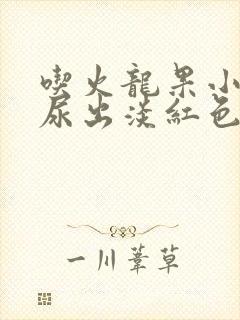 喫火龍果小
尿出淡紅色
一川葦草